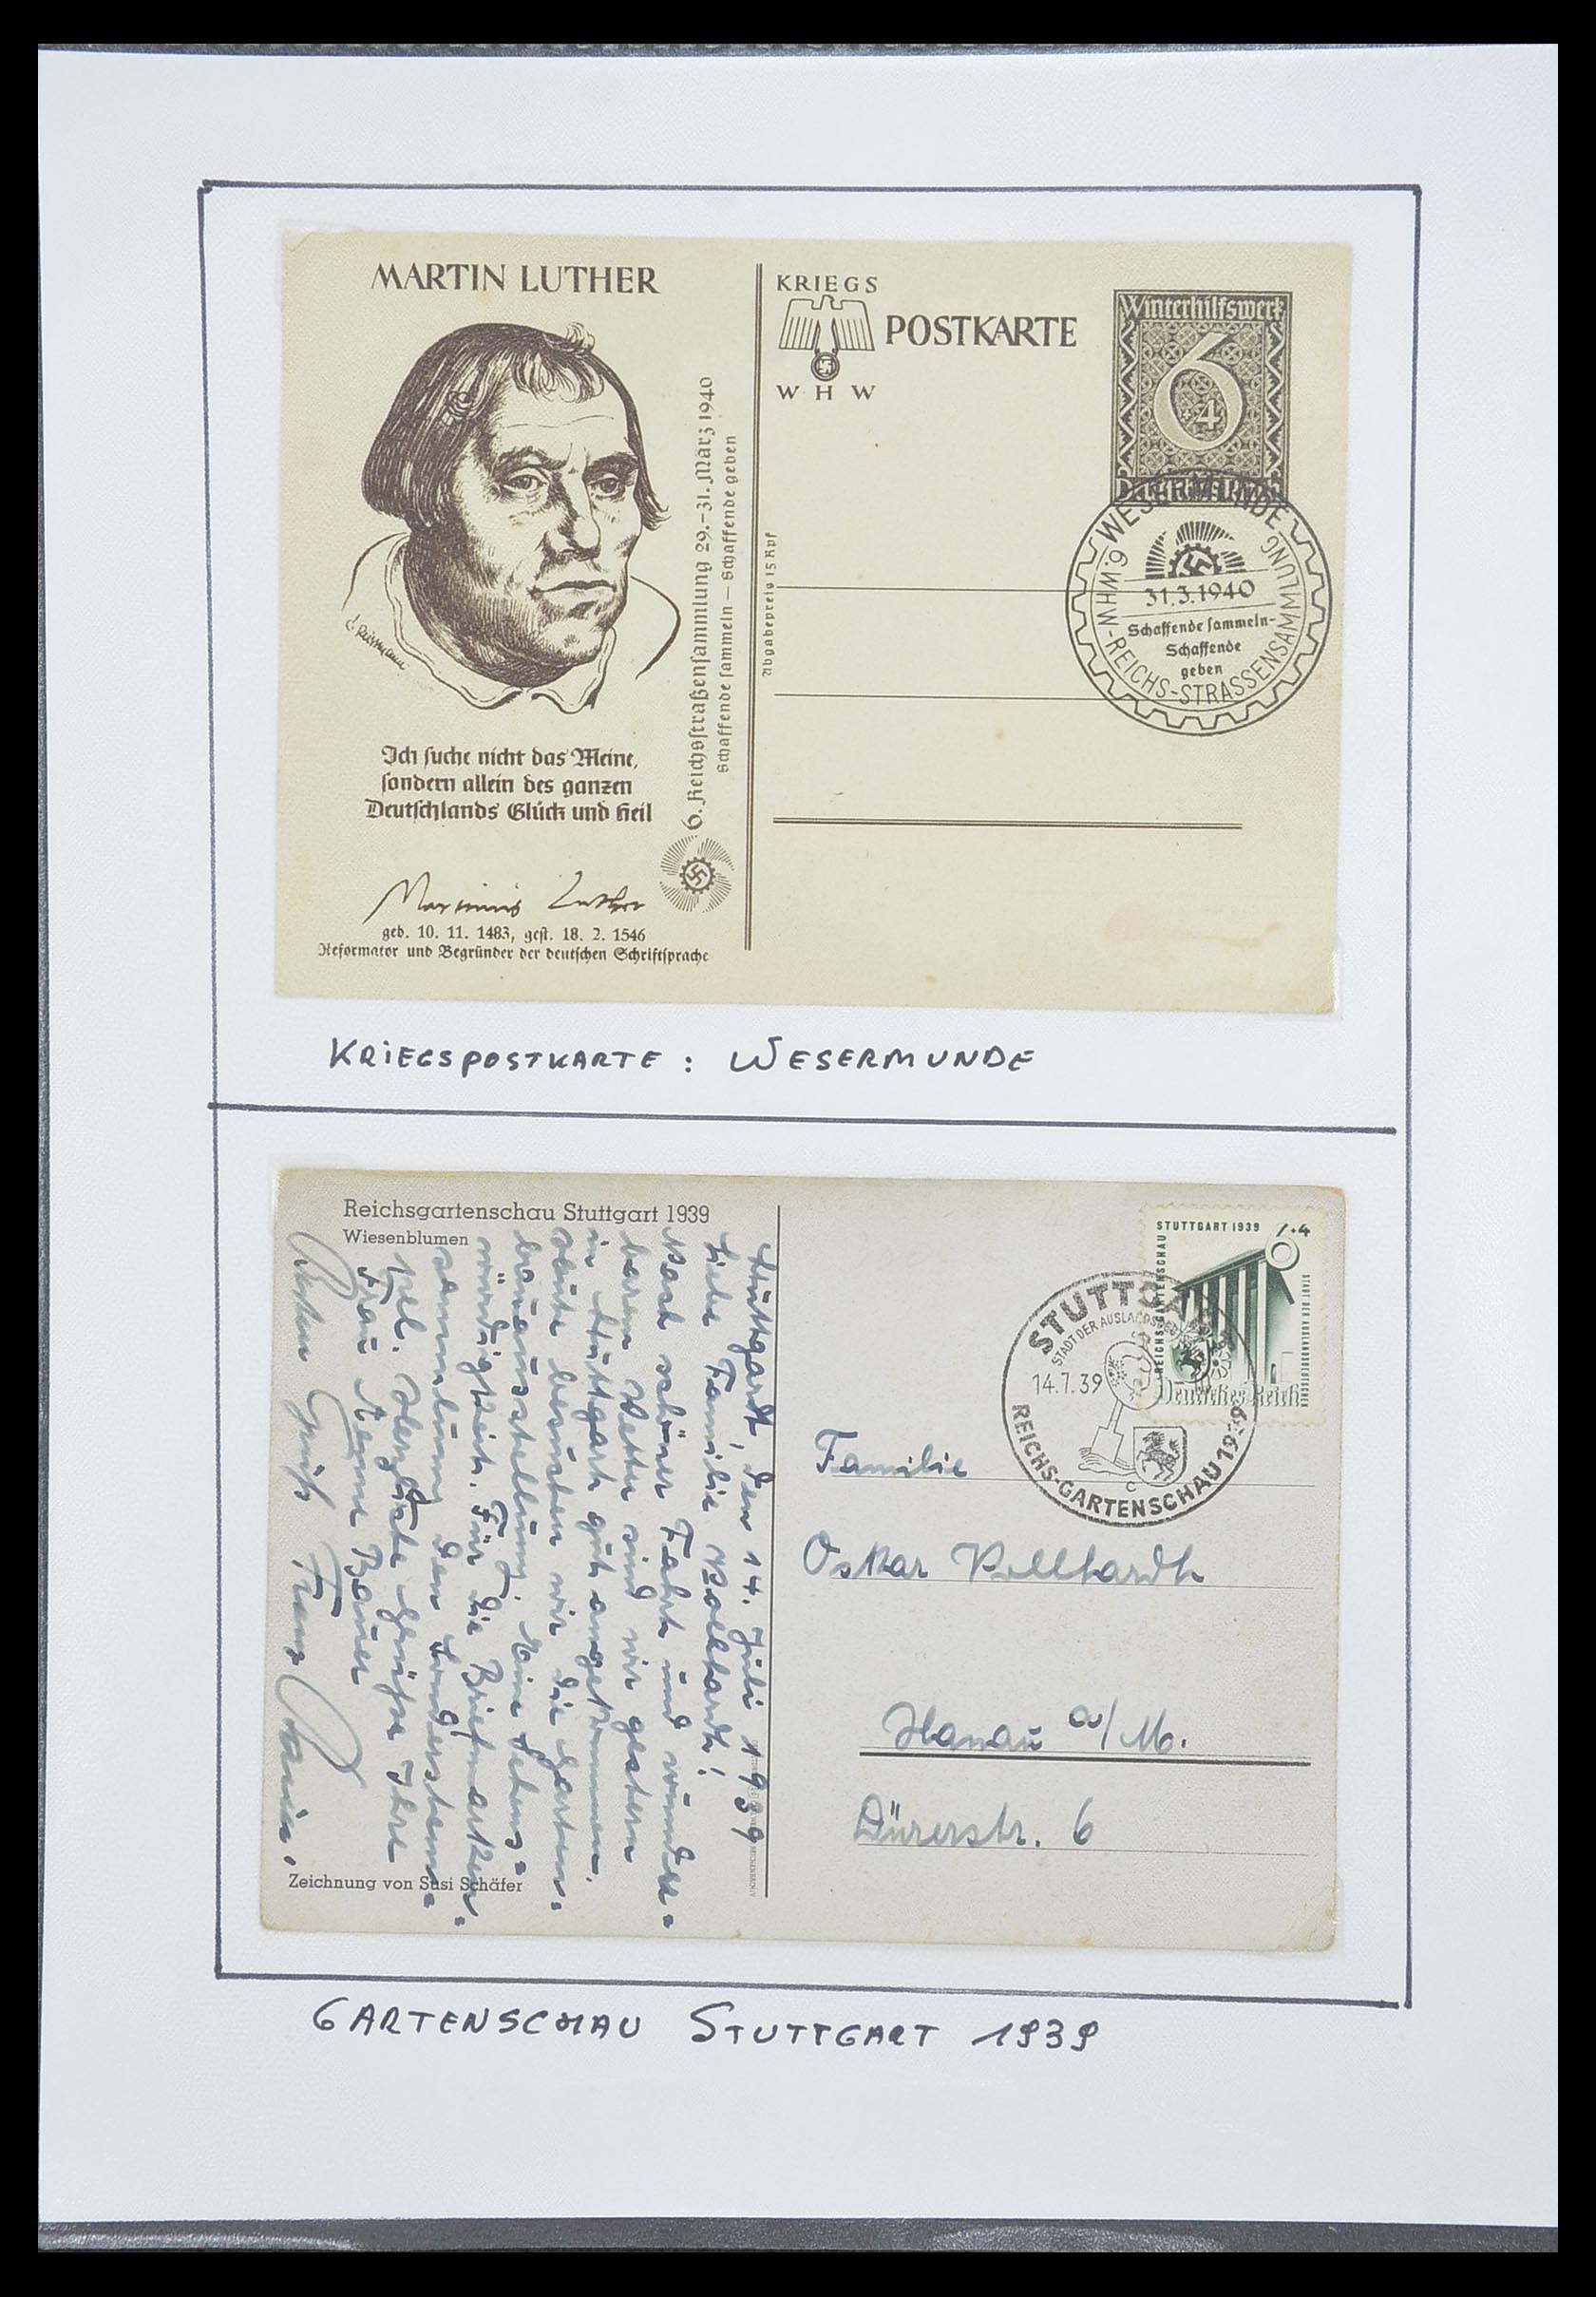 MARTIN LUTHER
Ich suche nicht das Meine,
sondern allein des ganzen
Deutschlands Glück und Heil
Martinus Luther
geb. 10. 11. 1483, gest. 18. 2. 1546
Reformator und Begründer der deutschen Schriftsprache
6. Reichsstraßensammlung 29.–31. März 1940
Schaffende sammeln – Schaffende geben
Abgabepreis 15 Rpf
KRIEGS
POSTKARTE
W H W
Winterhilfswerk
6
+4
Deutsches Reich
WESERMÜNDE
31.3.1940
Schaffende sammeln-
Schaffende
geben
6. WHW-REICHS-STRASSENSAMMLUNG
KRIEGSPOSTKARTE: WESERMUNDE
Reichsgartenschau Stuttgart 1939
Wiesenblumen
Stuttgart, den 14. Juli 1939
Liebe Familie Vollhardt!
Nach schöner Fahrt und wunder-
barem Wetter sind wir gestern
in Stuttgart gut angekommen.
Heute besuchten wir die Garten-
bauausstellung. Eine Sehens-
würdigkeit. Für die Briefmarken-
sammlung den Sonderstem-
pel. Herzliche Grüße Ihre
Frau Bauer
Gruß
Zeichnung von Susi Schäfer
STUTTGART 1939
6+4
REICHS-GARTENSCHAU
STADT DER AUSLANDSDEUTSCHEN
Deutsches Reich
STUTTGART
STADT DER AUSLANDSD
14.7.39
c
REICHS-GARTENSCHAU 1939
Familie
Oskar Vollhardt
Hanau a/M.
Dürerstr. 6
GARTENSCHAU STUTTGART 1939